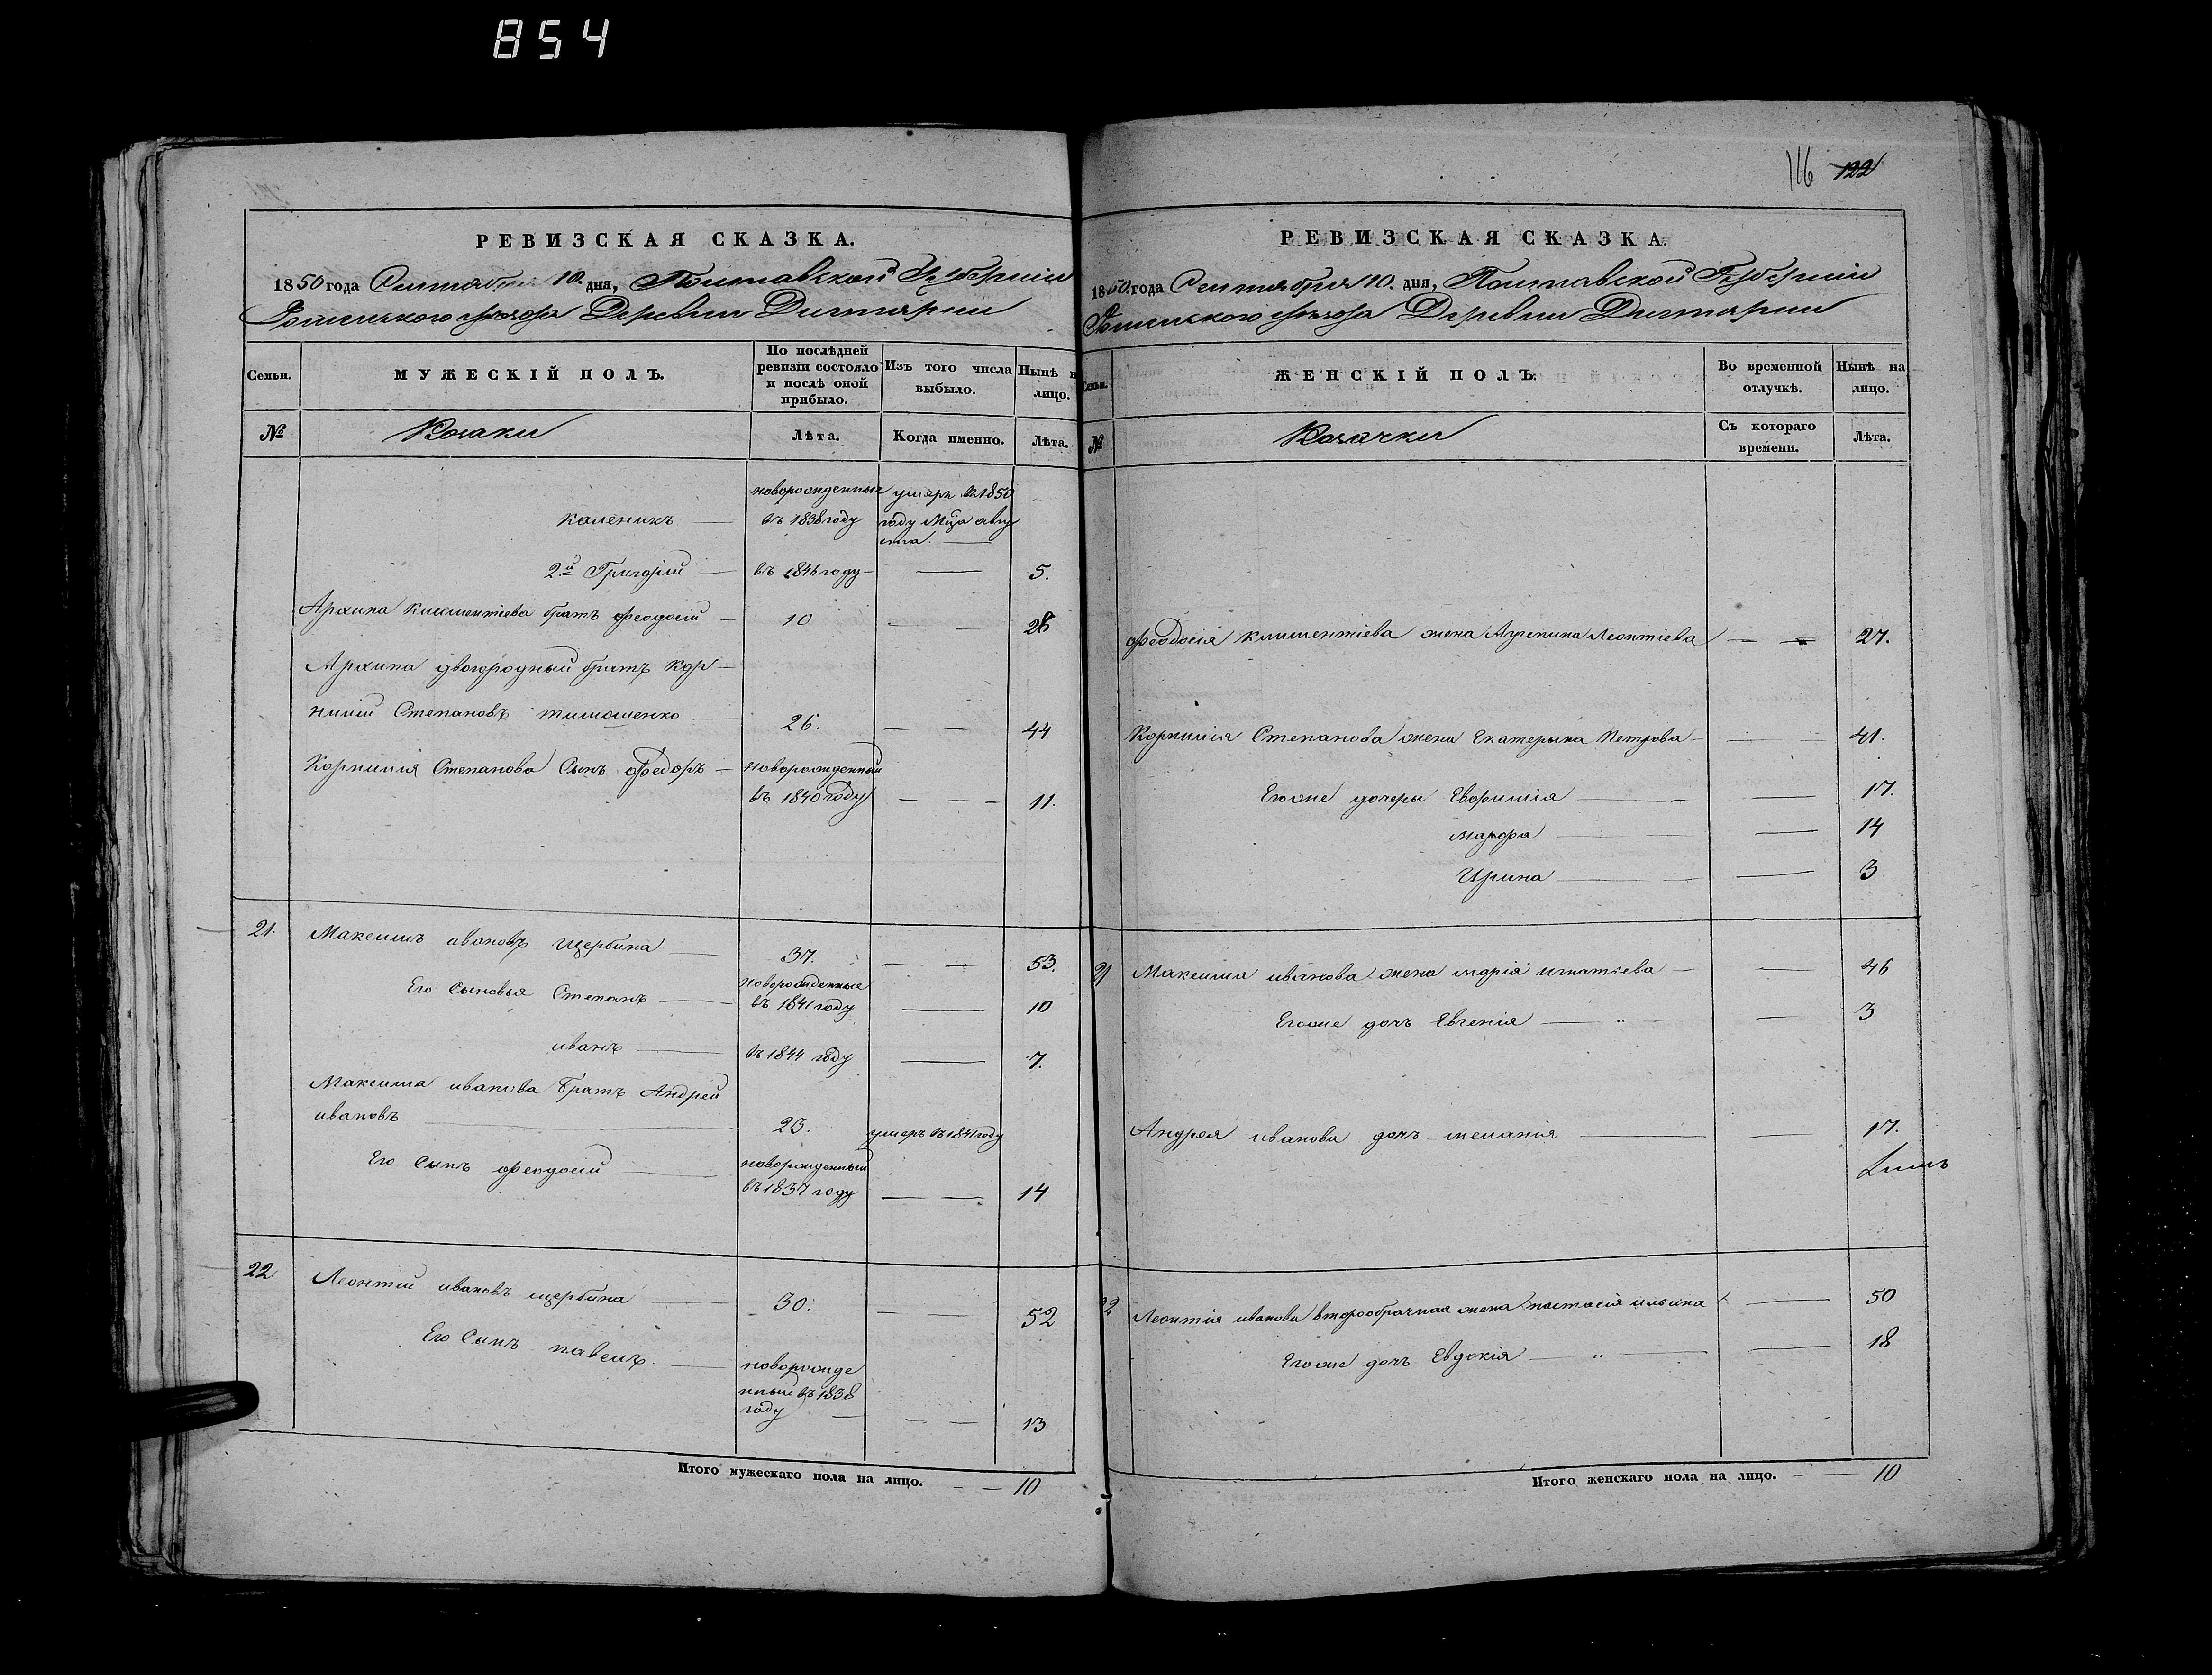 854
116 122
РЕВИЗСКАЯ СКАЗКА.
1850 года Сентября 10. дня, Полтавской Губернiи
Роменского уезда Деревни Дигтярни
Семьи.
МУЖЕСКIЙ ПОЛЪ.
По послѣдней ревизiи состояло и послѣ оной прибыло.
Изъ того числа выбыло.
Нынѣ н лицо.
№
Козаки
Лѣта.
Когда именно.
Лѣта.
каленикъ новорожденные въ 1838 году умеръ въ 1850 году Мца авгу ста.
2й Григорiй въ 1846 году 5.
Архипа климентiева братъ феодосiй 10 28
Архипа двоюродный братъ кор
нилiй Степановъ тимошенко 26. 44
Корнилiя Степанова Сынъ федоръ новорожденный въ 1840 году 11.
21. Максимъ ивановъ щербина 37. 53.
Его Сыновья Степанъ новорожденные въ 1841 году 10
иванъ въ 1844 году 7.
Максима иванова Братъ Андрей
ивановъ 23. умеръ въ 1841 году
Его Сынъ феодосiй новорожденный въ 1837 году 14
22 Леонтiй ивановъ щербина 30. 52
Его Сынъ павелъ новорожде нный въ 1838 году 13
Итого мужескаго пола на лицо. 10
РЕВИЗСКАЯ СКАЗКА.
1850 года Сентября 10. дня, Полтавской Губернiи
Роменского уезда Деревни Дигтярни
Семьи.
ЖЕНСКIЙ ПОЛЪ.
Во временной отлучкѣ.
Нынѣ на лицо.
№
Козачки
Съ котораго времени.
Лѣта.
феодосiя климентiева жена Агрепина Леонтiева 27.
Корнилiя Степанова жена Екатерина Петрова 41.
Егоже дочеры Евфимiя 17.
марфа 14
Ирина 3
21 Максима иванова жена марiя игнатьева 46
Егоже дочъ Евгенiя 3
Андрея иванова дочъ меланiя 17.
22 Леонтiя иванова второбрачная жена настасiя ильина 50
Егоже дочъ Евдокiя 18
Итого женскаго пола на лицо. 10